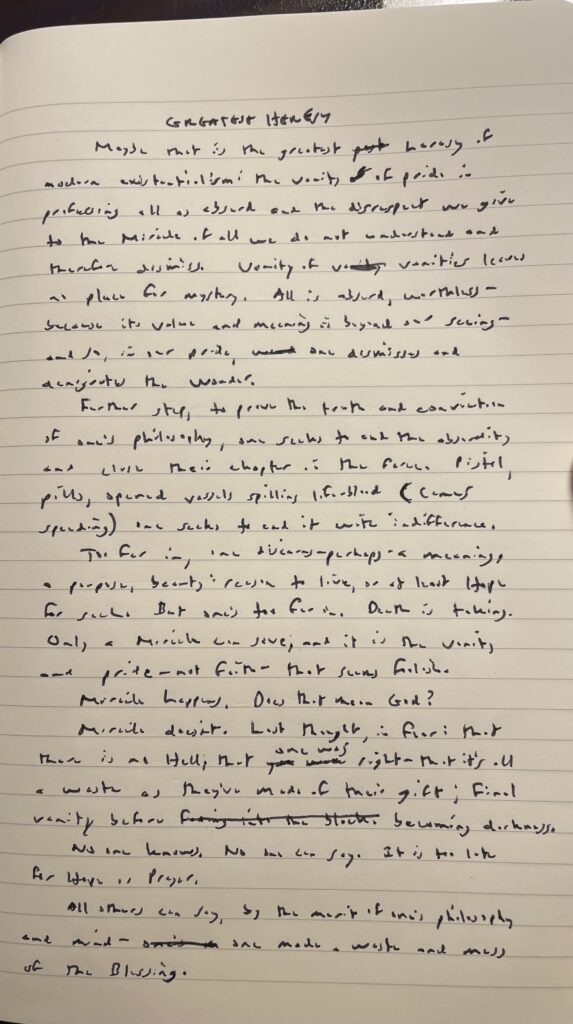 GREATEST HERESY
Maybe that is the greatest heresy of
modern existentialism: the vanity of pride in
professing all as absurd and the disrespect we give
to the Miracle of all we do not understand and
therefore dismiss. Vanity of vanities leaves
no place for mystery. All is absurd, worthless-
because its value and meaning is beyond our seeing-
and so, in our pride, one dismisses and
denigrates the wonder.
Further step, to prove the truth and conviction
of one's philosophy, one seeks to end the absurdity
and close their chapter in the farce. Pistol,
pills, opened vessels spilling lifeblood (Camus
speeding) one seeks to end it with indifference.
Too far in, one discerns-perhaps-a meaning,
a purpose, beauty: reason to live, or at least Hope
for such. But one's too far in. Death is taking.
Only a Miracle can save, and it is the vanity
and pride-not faith-that seems foolish.
Miracle happens. Does that mean God?
Miracle doesn't. Last thought, in fear: that
there is no Hell; that one was right-that it's all
a waste as they've made of their gift; final
vanity before becoming darkness.
No one knows. No one can say. It is too late
for Hope or Prayer.
All others can say, by the merit of one's philosophy
and mind- one made a waste and mess
of the Blessing.